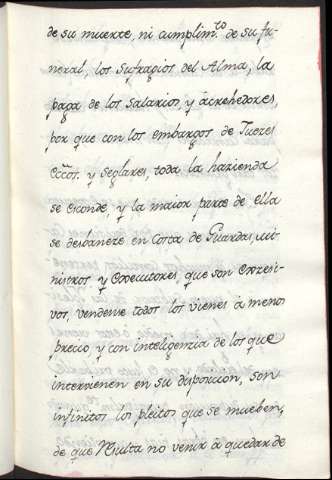 de su muerte, ni cumplim.to de su fu-
neral, los sufragios del Alma, la
paga de los salarios, y àcrehedores,
por que con los embargos de Juezes
Eccos. y seglares, toda la hazienda
se esconde, y la maior parte de ella
se desbanese en Costa de Guardas, mi-
nistros y Executores, que son excesi-
vos, vendense todos los vienes à menos
precio y con inteligenzia de los que
intervienen en su disposicion, son
infinitos los pleitos que se mueben,
de que Resulta no venir à quedar de